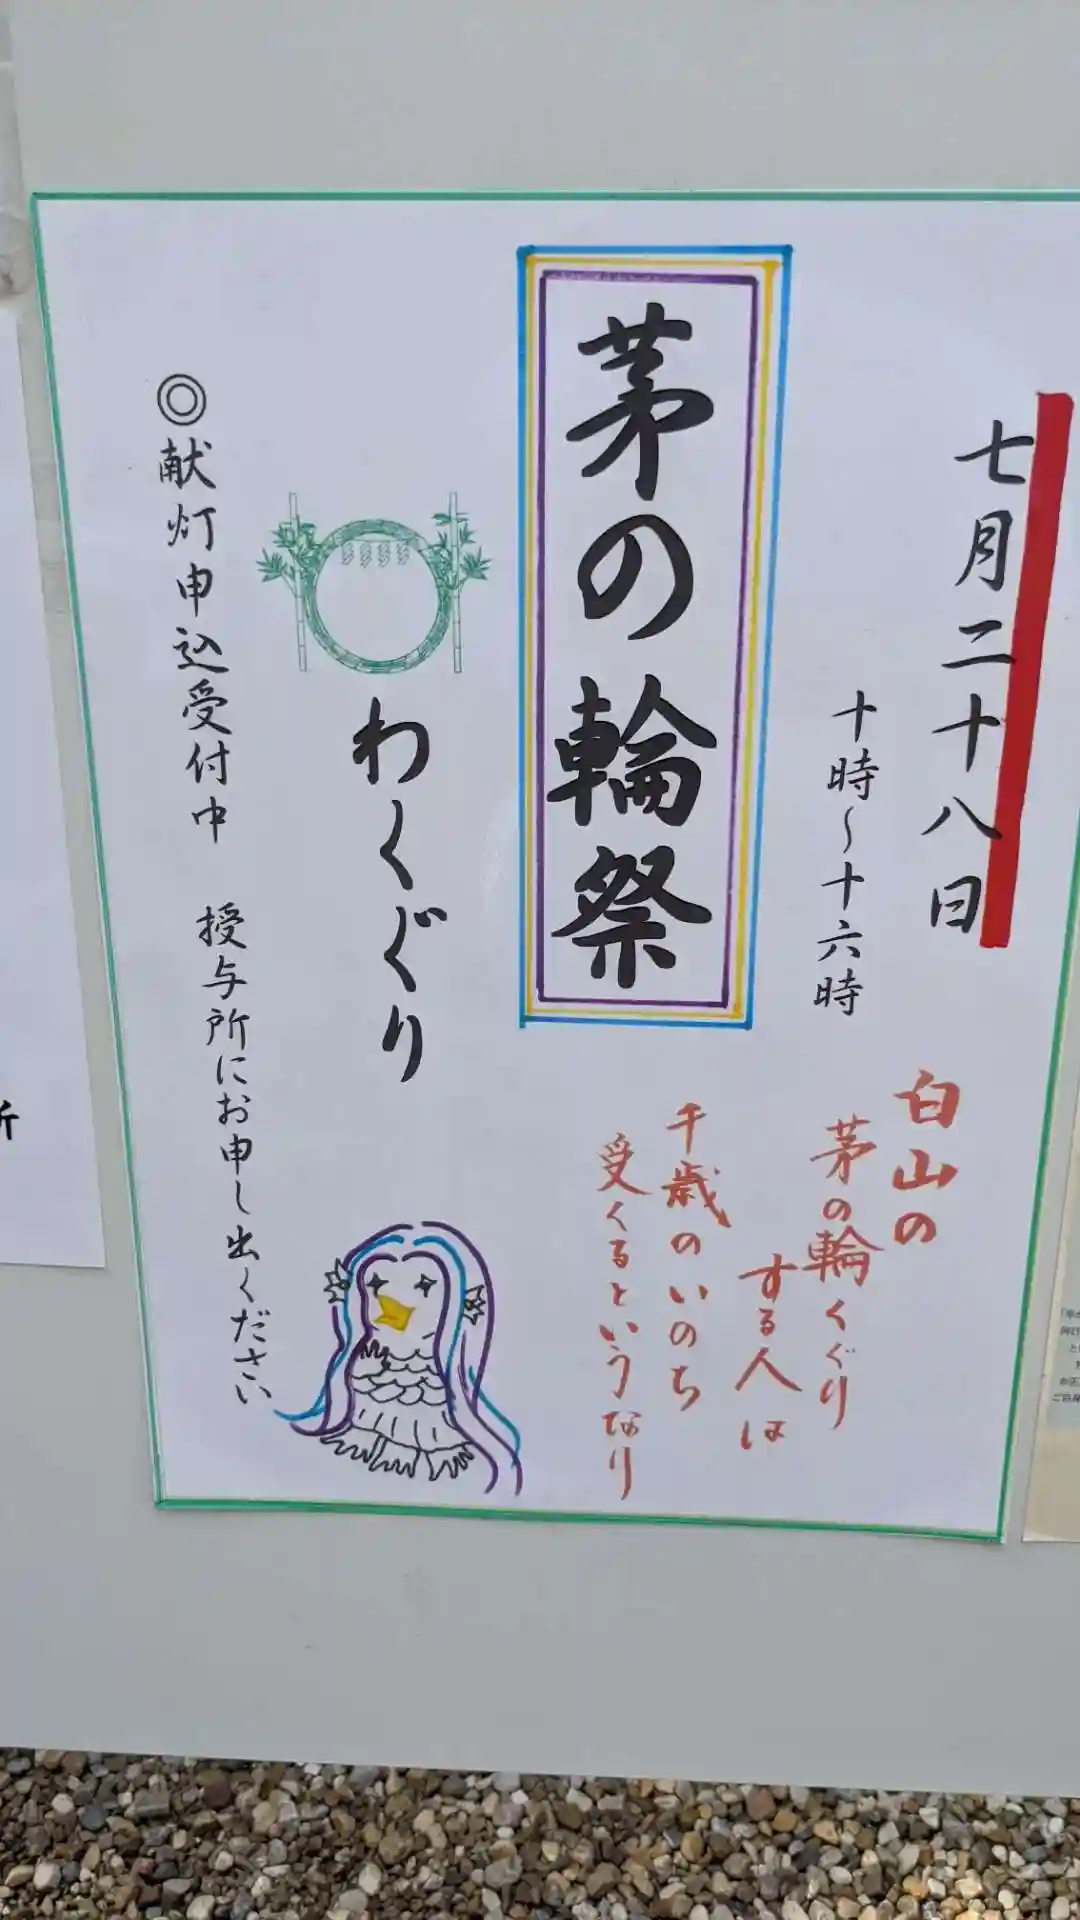 七月二十八日
十時～十六時
白山の
茅の輪くぐり
する人は
千歳のいのち
受くるというなり
茅の輪祭
わくぐり
◎献灯申込受付中 授与所にお申し出ください